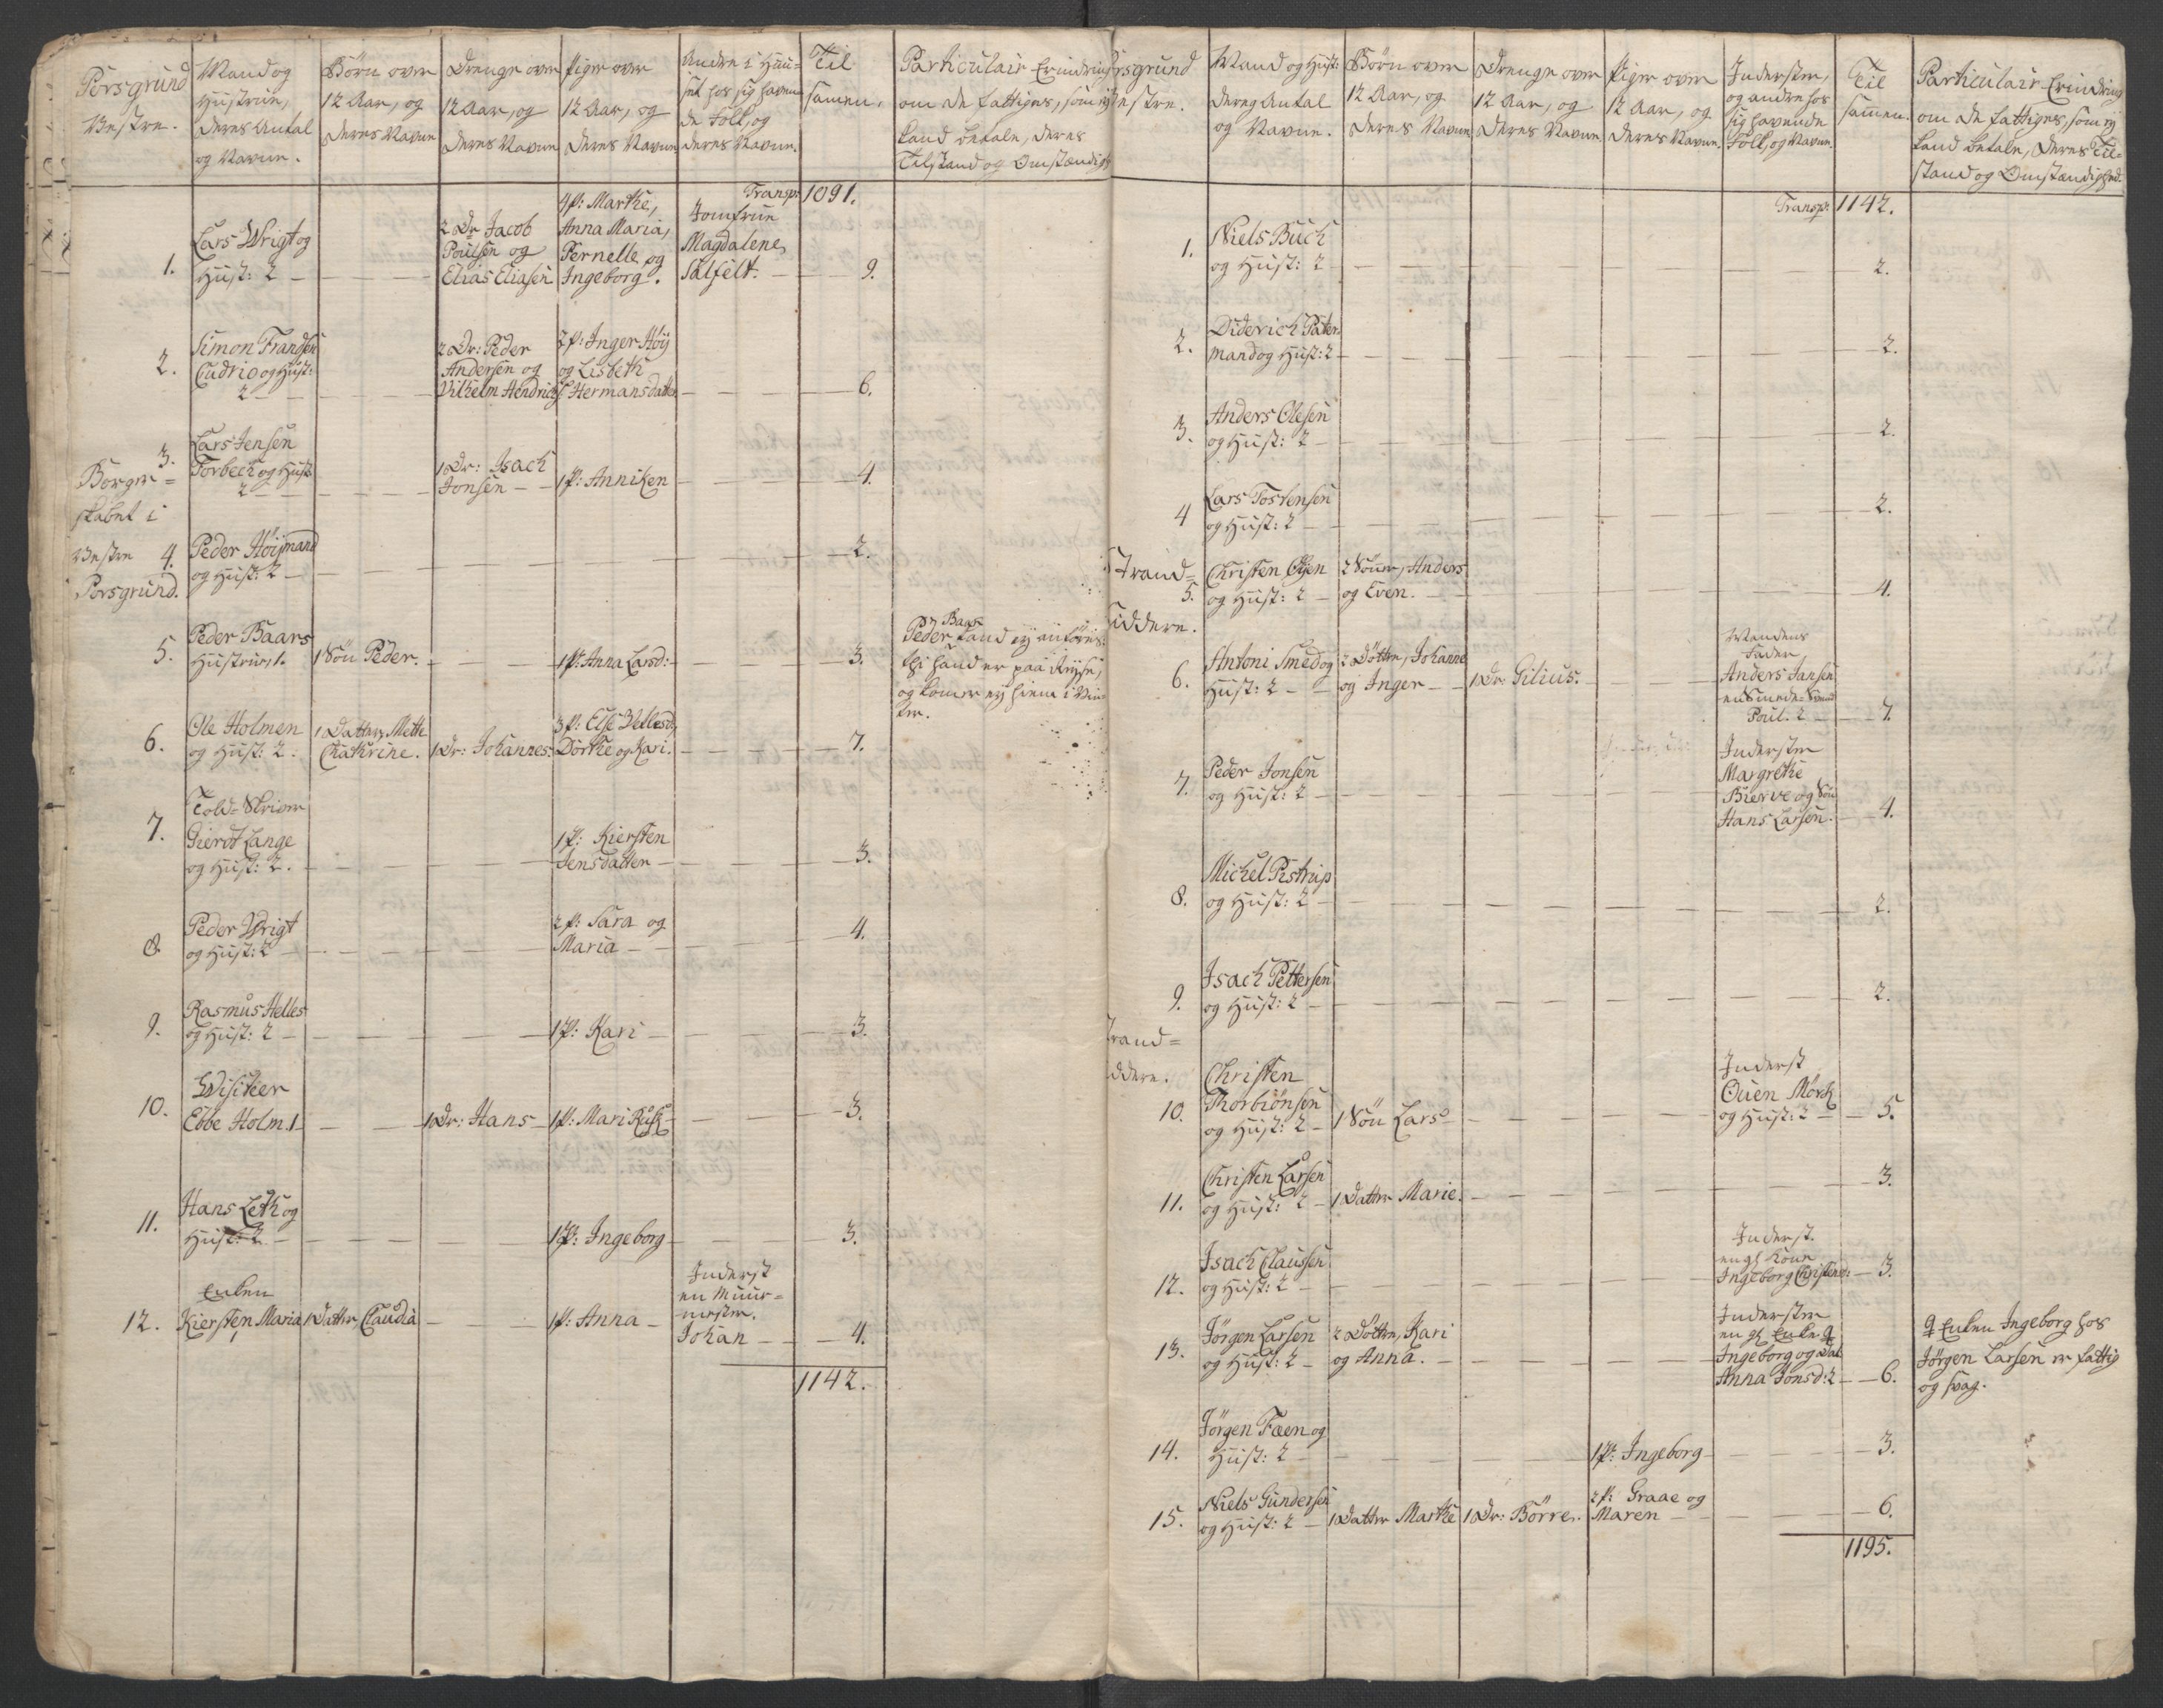 Porsgrund
Vestre.
Mand og
Hustrue,
deres Antal
og Navne.
Börn over
12 Aar, og
deres Navne
Drenge over
12 Aar, og
deres Navne
Piger over
12 Aar, og
deres Navne
Andre i Huu-
set hos sig havende
Folk, og
deres Navne.
Til
sammen.
Particulair Erindring
om de Fattiges, som ej
kand betale, deres
Tilstand og Omstændigh
Transp: 1091.
Borger=
skabet i
Vestre
Porsgrund.
1.
Lars Wrigt og
Hust: 2
2 Dr Jacob
Poulsen og
Elias Eliasen
4 P: Marthe,
Anna Maria,
Pernelle og
Ingeborg.
Jomfrue
Magdalene
Salfelt.
9.
2.
Simon Frandsen
Cudrio og Hust:
2
2 Dr: Peder
Andersen og
Vilhelm Hendrichs
2 P: Inger Höy
og Lisbeth
Hermansdatter
6.
3.
Lars Jensen
Torbech og Hust
2
1 Dr: Isach
Jonsen
1 P: Anniken
4.
4.
Peder Höymand
og Hust: 2
2.
5.
Peder Baars
Hustrue, 1.
1 Sön Peder.
1 P: Anna Larsd:
3.
Peder Baars kand ej anföres
thi hand er paa Reyse,
og komer ej hiem i Vin-
ter.
6.
Ole Holmen
og Hust: 2.
1 Datter Mette
Chathrine.
1 Dr: Johannes:
3 P: Else Vetlesd,
Dorthe og Kari.
7.
7.
Told=Skriver
Gierdt Lange
og Hust: 2.
1 P: Kiersten
Jensdatter
3.
8.
Peder Wrigt
og Hust: 2
2 P: Sara og
Maria
4.
9.
Rasmus Helles
og Hust: 2
1 P: Kari
3.
10.
Wisiteer
Ebbe Holm. 1
1 Dr: Hans
1 P: Mari Rusk
3.
11.
Hans Leth og
Hust: 2
1 P: Ingeborg
3.
12.
Enken
Kiersten Maria
1
1 Datter, Claudia
1 P: Anna
Inderst
en Muur=
mester.
Johan
4.
1142.
Porsgrund
Vestre.
Mand og Hust:
deres Antal
og Navne.
Börn over
12 Aar, og
deres Navne
Drenge over
12 Aar, og
deres Navne
Piger over
12 Aar, og
deres Navne.
Inderster,
og andre hos
sig havende
Folk, og Navne.
Til
sammen.
Particulair Erindring
om de Fattiges, som ej
kand betale, deres Til=
stand og Omstændighed.
Transp: 1142.
Strand=
siddere.
1.
Niels Buch
og Hust: 2
2.
2.
Diderich Pater
mand og Hust: 2
2.
3.
Anders Olesen
og Hust: 2
2.
4
Lars Tostensen
og Hust: 2
2.
5.
Christen Olsen
og Hust: 2
2 Sönner, Anders
og Even.
4.
6.
Antoni Smed og
Hust: 2
2 Döttre, Johanne
og Inger
1 Dr: Gilius.
Mandens
Fader
Anders Jansen
en Smede=Svend
Poul. 2
7.
7.
Peder Jonsen
og Hust: 2
Inderster
Margrethe
Bierve og Sön
Hans Larsen.
4.
8.
Michel Pistrup
og Hust: 2
2.
9.
Isach Pettersen
og Hust: 2
2.
Strand=
siddere.
10.
Christen
Thorbiönsen
og Hust: 2
1 Sön Lars
Inderst
Ouen Mörch
og Hust: 2
5.
11.
Christen Larsen
og Hust: 2
1 Datter Marie.
3.
12.
Isach Claussen
og Hust: 2
Inderst.
en gl Kone
Ingeborg Christensd:
3.
13.
Jörgen Larsen
og Hust: 2
2 Döttre, Kari
og Anna.
Inderster
en gl Enke
Ingeborg og Dat
Anna Jonsd: 2
6.
Enken Ingeborg hos
Jörgen Larsen er fattig
og svag.
14.
Jörgen Fæen og
Hust: 2
1 P: Ingeborg
3.
15.
Niels Gundersen
og Hust: 2
1 Datter Marthe
1 Dr: Börre.
2 P: Graae og
Maren
6.
1195.